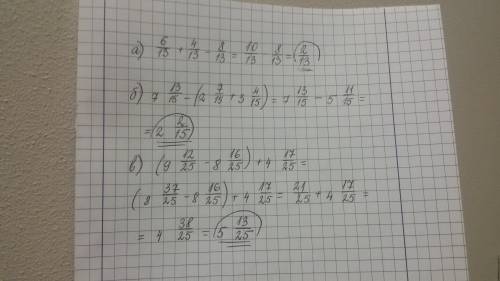 а) 6/13 + 4/13 - 8/13 = 10/13 - 8/13 = 2/13
б) 7 13/15 - (2 7/15 + 3 4/15) = 7 13/15 - 5 11/15 =
= 2 2/15
в) (9 12/25 - 8 16/25) + 4 17/25 =
(8 37/25 - 8 16/25) + 4 17/25 = 21/25 + 4 17/25 =
= 4 38/25 = 5 13/25